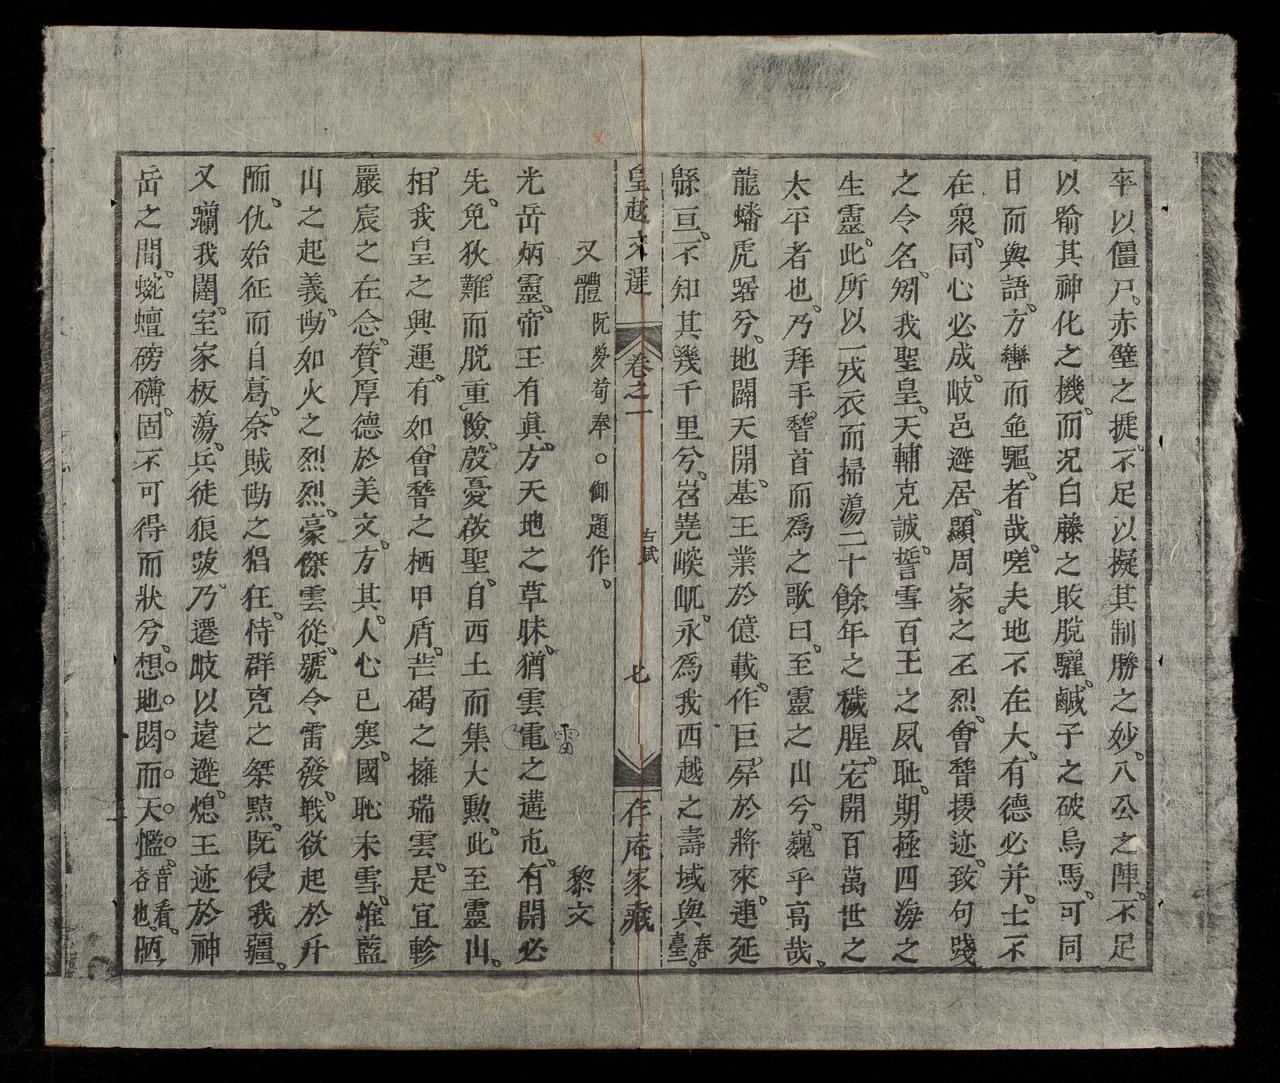 卒以僵尸。赤壁之㨗。不足以擬其制勝之妙。八公之陣。不足
以喻其神化之機。而况白藤之敗脫驩。鹹子之破烏馬。可同
日而與語。方轡而並驅。者哉。嗟夫。地不在大。有德必并。士不
在衆。同心必成。岐邑避居。顯周家之丕烈。會稽擾迹。致句踐
之令名。矧我聖皇。天輔克誠。誓雪百王之夙恥。期拯四海之
生靈。此所以一戎衣而掃蕩二十餘年之穢腥。宏開百萬世之
太平者也。乃拜手稽首而爲之歌曰。至靈之山兮。巍乎高哉。
龍蟠虎踞兮。地闢天開。基王業於億載。作巨屏於將來。連延
緜亘。不知其幾千里兮。岧嶤峻屼。永爲我西越之壽域與春臺。
皇越文選 卷之一 古賦 七 存庵家藏
又體 阮夢荀奉。○御題作。 黎文
光岳炳靈。帝王有眞。方天地之草昧。猶雲電之遘屯。有開必
雷
先。免狄難。而脫重險。殷憂啟聖。自西土而集大勲。此至靈山。
相。我皇之興運。有如會稽之栖甲盾。芒碭之擁瑞雲。是宜軫
嚴宸之在念。贊厚德於美文。方其。人心已寒。國恥未雪。惟藍
山之起義。勢如火之烈烈。豪傑雲從。號令雷發。戰欲起於升
陑。仇始征而自葛。奈賊勢之猖狂。恃群克之桀黠。旣侵我疆。
又躪我闥。室家板蕩。兵徒狼跋。乃遷岐以遠避。熄王迹於神
岳之間。蜿蟺磅礴。固不可得而狀兮。想地閟而天慳。音看。吝也。陋